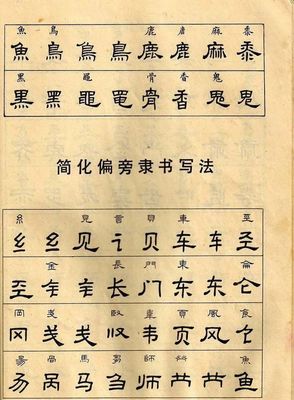 魚 鳥 鹿 唐 麻 黍
魚 鳥 鳥 鳥 鹿 鹿 麻 黍
黽 骨 香 鬼
黑 黑 黽 黽 骨 香 鬼 鬼
简化偏旁隶书写法
見 言 貝 車 巠
纟 纟 见 讠 贝 车 车 圣
金 長 門 東 侖
至 钅 钅 长 门 东 东 仑
岡 戔 臤 韋 頁 風 食
冈 戋 戋 韦 页 风 饣
昜 咼 馬 芻 師 魚
呙 马 刍 师 鱼